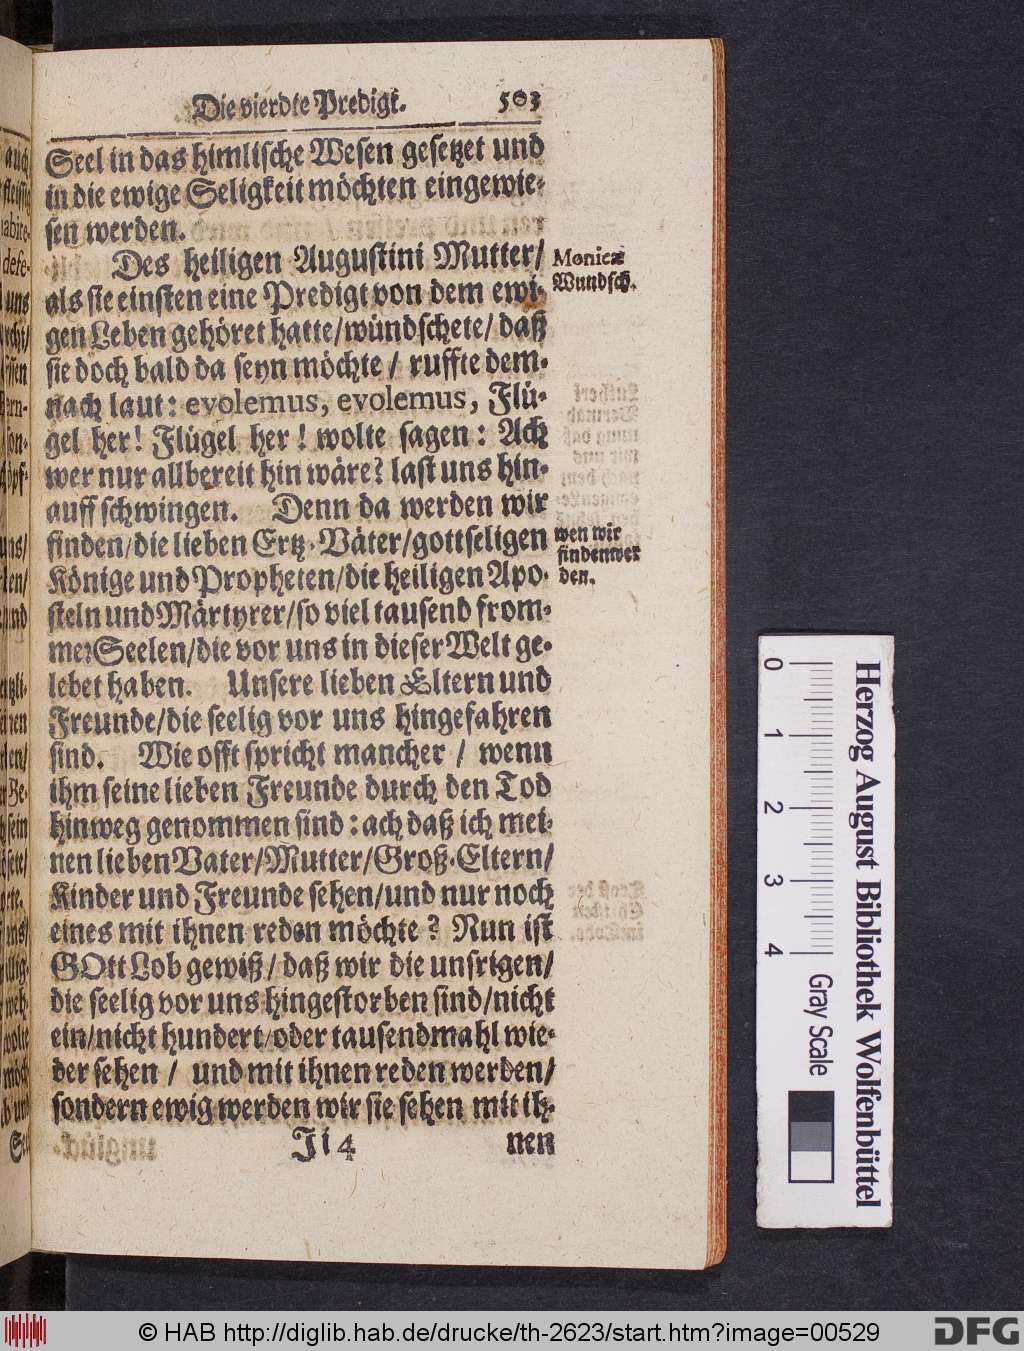 Die vierdte Predigt. 503
Seel in das himlische Wesen gesetzet und
in die ewige Seligkeit möchten eingewie-
sen werden.
Des heiligen Augustini Mutter/
als sie einsten eine Predigt von dem ewi-
gen Leben gehöret hatte/wündschete/ daß
sie doch bald da seyn möchte / ruffte dem-
nach laut: evolemus, evolemus, Flü-
gel her! Flügel her! wolte sagen: Ach
wer nur allbereit hin wäre? last uns hin-
auff schwingen. Denn da werden wir
finden/die lieben Ertz-Väter/gottseligen
Könige und Propheten/die heiligen Apo-
steln und Märtyrer/so viel tausend from-
mer Seelen/die vor uns in dieser Welt ge-
lebet haben. Unsere lieben Eltern und
Freunde/die seelig vor uns hingefahren
sind. Wie offt spricht mancher / wenn
ihm seine lieben Freunde durch den Tod
hinweg genommen sind: ach daß ich mei-
nen lieben Vater/Mutter/Groß-Eltern/
Kinder und Freunde sehen/und nur noch
eines mit ihnen reden möchte? Nun ist
GOtt Lob gewiß/ daß wir die unsrigen/
die seelig vor uns hingestorben sind/nicht
ein/nicht hundert/oder tausendmahl wie-
der sehen / und mit ihnen reden werden/
sondern ewig werden wir sie sehen mit ih-
Ji 4 nen
Monicæ
Wundsch.
wen wir
finden wer
den.
0 1 2 3 4
Gray Scale
Herzog August Bibliothek Wolfenbüttel
© HAB http://diglib.hab.de/drucke/th-2623/start.htm?image=00529
DFG